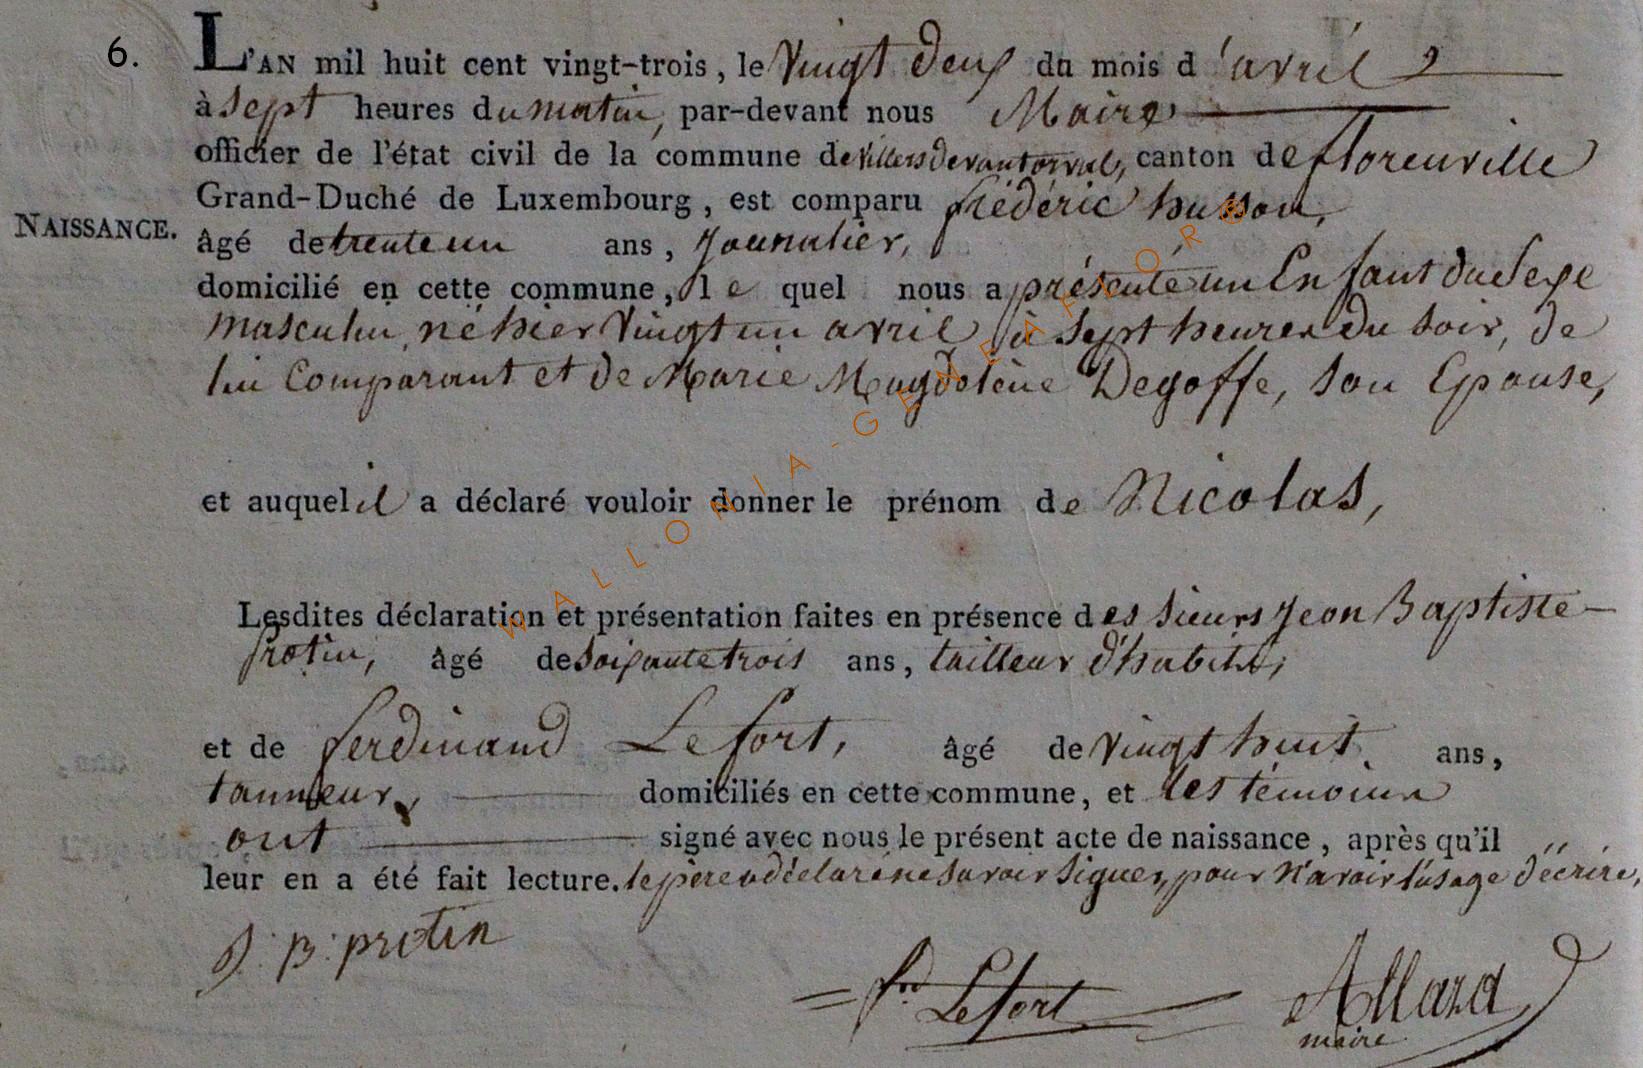 6.
L'AN mil huit cent vingt-trois, le Vingt deux du mois d'avril
à sept heures du matin, par-devant nous Maire
officier de l'état civil de la commune de villers devant orval, canton de florenville
Grand-Duché de Luxembourg, est comparu frédéric husson,
NAISSANCE.
âgé de trente un ans, Journalier,
domicilié en cette commune, le quel nous a présenté un Enfant du Sexe
masculin, né hier Vingt un avril à sept heures du soir, de
lui Comparant et de Marie Magdolène Degoffe, son Epouse,
et auquel il a déclaré vouloir donner le prénom de Nicolas,
Lesdites déclaration et présentation faites en présence des sieurs Jean Baptiste
Protin, âgé de soixante trois ans, tailleur d'habits,
et de ferdinand Lefort, âgé de vingt huit ans,
tanneur, domiciliés en cette commune, et les témoins
ont signé avec nous le présent acte de naissance, après qu'il
leur en a été fait lecture. le père a déclaré ne savoir signer, pour n'avoir l'usage d'écrire,
J: B: protin
fd Lefort
Allard
maire
WALLONIA-GENEAFOR®